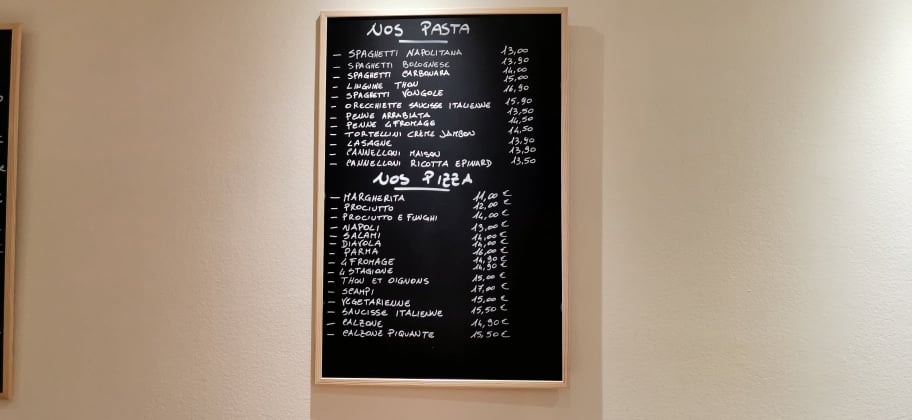 NOS PASTA
- SPAGHETTI NAPOLITANA 13,00
- SPAGHETTI BOLOGNESE 13,90
- SPAGHETTI CARBONARA 14,00
- LINGUINE THON 15,00
- SPAGHETTI VONGOLE 16,90
- ORECCHIETTE SAUCISSE ITALIENNE 15,90
- PENNE ARRABIATA 13,50
- PENNE 4 FROMAGE 14,50
- TORTELLINI CRÈME JAMBON 14,50
- LASAGNE 13,90
- CANNELLONI MAISON 13,90
- CANNELLONI RICOTTA EPINARD 13,50
NOS PIZZA
- MARGHERITA 11,00 €
- PROCIUTTO 12,00 €
- PROCIUTTO E FUNGHI 14,00 €
- NAPOLI 13,00 €
- SALAMI 14,00 €
- DIAVOLA 14,00 €
- PARMA 16,00 €
- 4 FROMAGE 14,90 €
- 4 STAGIONE 14,90 €
- THON ET OIGNONS 15,00 €
- SCAMPI 17,00 €
- VEGETARIENNE 15,00 €
- SAUCISSE ITALIENNE 15,50 €
- CALZONE 14,90 €
- CALZONE PIQUANTE 15,50 €